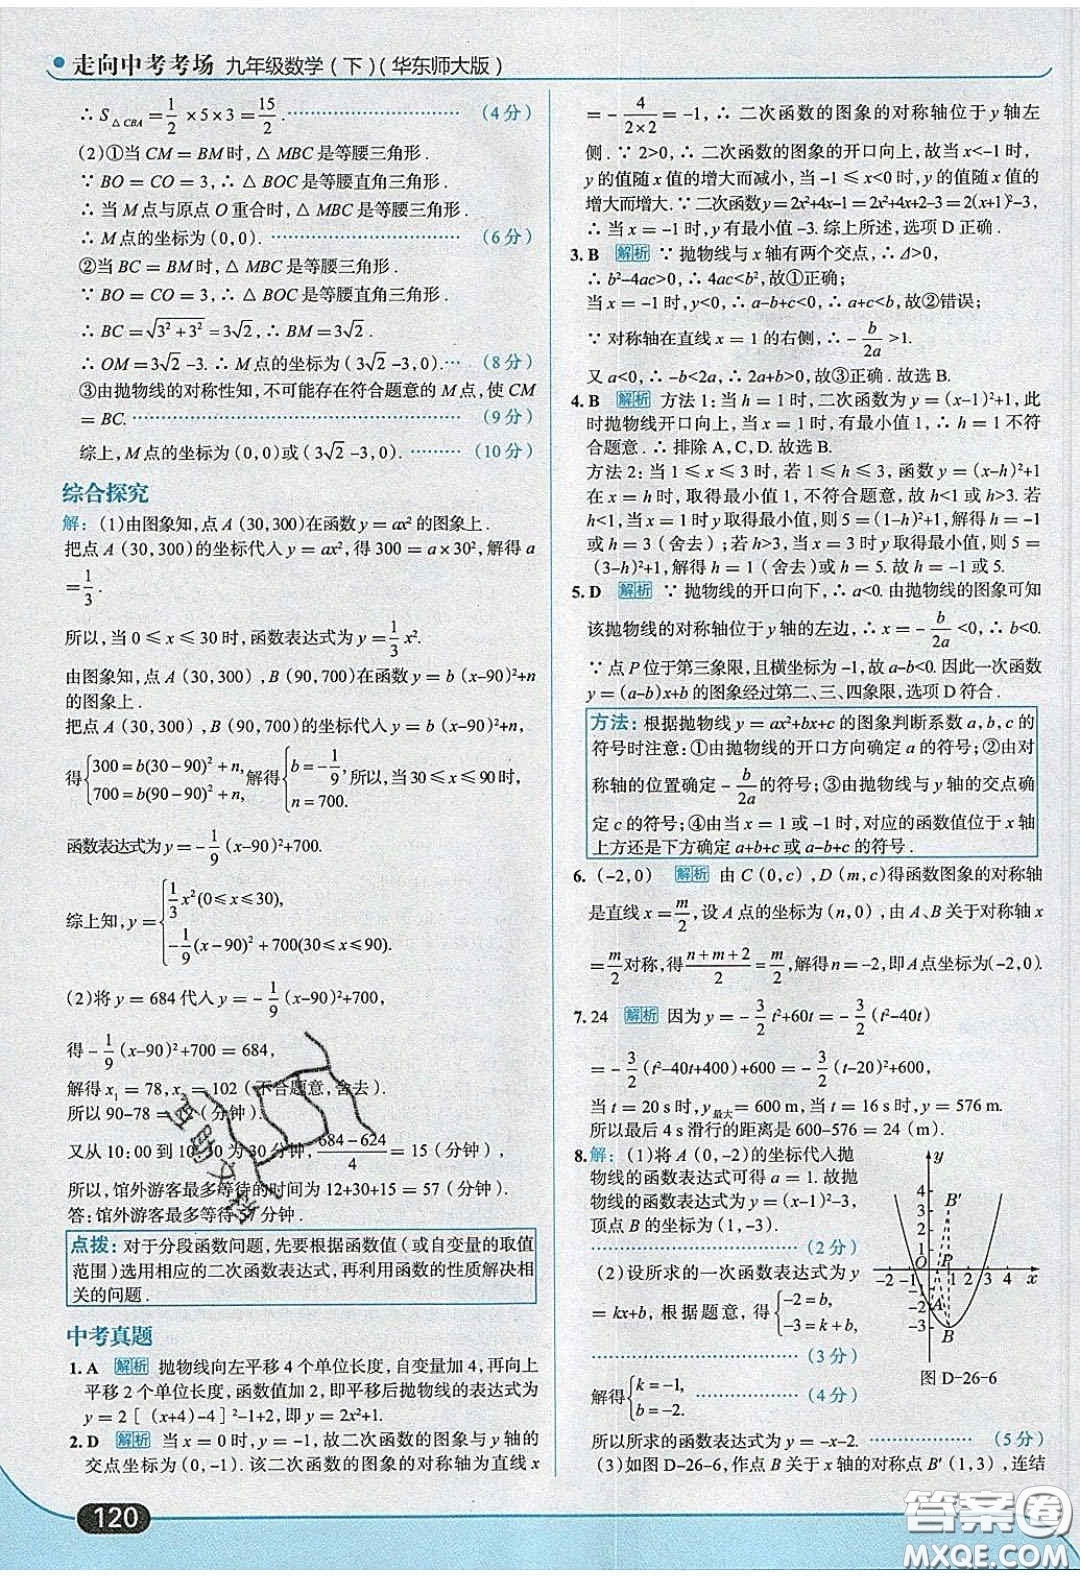 走向中考考场 九年级数学(下)(华东师大版)
∴ S△CBA = 1/2 ×5×3 = 15/2. (4分)
(2)①当 CM = BM 时, △ MBC 是等腰三角形.
∵ BO = CO = 3, ∴ △ BOC 是等腰直角三角形.
∴ 当 M 点与原点 O 重合时, △ MBC 是等腰三角形.
∴ M 点的坐标为(0,0). (6分)
②当 BC = BM 时, △ MBC 是等腰三角形.
∵ BO = CO = 3, ∴ △ BOC 是等腰直角三角形.
∴ BC = √(3²+3²) = 3√2, ∴ BM = 3√2.
∴ OM = 3√2 -3. ∴ M 点的坐标为(3√2 -3,0). (8分)
③由抛物线的对称性知,不可能存在符合题意的 M 点,使 CM
= BC. (9分)
综上, M 点的坐标为(0,0)或(3√2 -3,0). (10分)
综合探究
解: (1)由图象知,点 A (30,300)在函数 y = ax² 的图象上.
把点 A (30,300)的坐标代入 y = ax², 得 300 = a×30², 解得 a
= 1/3.
所以,当 0 ≤ x ≤ 30 时,函数表达式为 y = 1/3 x².
由图象知,点 A (30,300), B (90,700)在函数 y = b (x-90)²+n
的图象上.
把点 A (30,300), B (90,700)的坐标代入 y = b (x-90)²+n,
得{300 = b(30-90)² + n, 700 = b(90-90)² + n, 解得{b = -1/9, n = 700. 所以,当 30 ≤ x ≤ 90 时,
函数表达式为 y = -1/9 (x-90)²+700.
综上知, y = {1/3 x²(0≤x≤30), -1/9(x-90)² +700(30≤x≤90).
(2)将 y = 684 代入 y = -1/9 (x-90)²+700,
得 -1/9 (x-90)²+700 = 684,
解得 x₁ = 78, x₂ = 102 (不合题意,舍去).
所以 90-78 = 12 (分钟).
又从 10:00 到 10:30 为 30 分钟, (684-624)/4 = 15 (分钟),
所以,馆外游客最多等待的时间为 12+30+15 = 57 (分钟).
答:馆外游客最多等待 57 分钟.
点拨: 对于分段函数问题,先要根据函数值(或自变量的取值
范围)选用相应的二次函数表达式,再利用函数的性质解决相
关的问题.
中考真题
1. A 解析 抛物线向左平移 4 个单位长度,自变量加 4,再向上
平移 2 个单位长度,函数值加 2,即平移后抛物线的表达式为
y = 2 [ (x+4)-4 ]²-1+2, 即 y = 2x²+1.
2. D 解析 当 x = 0 时, y = -1, 故二次函数的图象与 y 轴的
交点坐标为(0,-1). 该二次函数的图象的对称轴为直线 x
120
= - 4/(2×2) = -1, ∴ 二次函数的图象的对称轴位于 y 轴左
侧. ∵ 2>0, ∴ 二次函数的图象的开口向上,故当 x<-1 时,
y 的值随 x 值的增大而减小,当 -1 ≤ x<0 时, y 的值随 x 的
增大而增大. ∵ 二次函数 y = 2x²+4x-1 = 2x²+4x+2-3 = 2(x+1)²-3,
∴ 当 x = -1 时, y 有最小值 -3. 综上所述,选项 D 正确.
3. B 解析 ∵ 抛物线与 x 轴有两个交点, ∴ Δ>0,
∴ b²-4ac>0, ∴ 4ac<b², 故①正确;
当 x = -1 时, y<0, ∴ a-b+c<0, ∴ a+c<b, 故②错误;
∵ 对称轴在直线 x = 1 的右侧, ∴ - b/2a >1.
又 a<0, ∴ -b<2a, ∴ 2a+b>0, 故③正确. 故选 B.
4. B 解析 方法 1:当 h = 1 时,二次函数为 y = (x-1)²+1, 此
时抛物线开口向上,当 x = 1 时, y 有最小值 1, ∴ h = 1 不符
合题意. ∴ 排除 A, C, D. 故选 B.
方法 2:当 1 ≤ x ≤ 3 时,若 1 ≤ h ≤ 3, 函数 y = (x-h)²+1
在 x = h 时,取得最小值 1,不符合题意,故 h<1 或 h>3. 若
h<1, 当 x = 1 时 y 取得最小值,则 5 = (1-h)²+1, 解得 h = -1
或 h = 3 (舍去);若 h>3, 当 x = 3 时 y 取得最小值,则 5 =
(3-h)²+1, 解得 h = 1(舍去)或 h = 5. 故 h = -1 或 5.
5. D 解析 ∵ 抛物线的开口向下, ∴ a<0. 由抛物线的图象可知
该抛物线的对称轴位于 y 轴的左边, ∴ x = - b/2a <0, ∴ b<0.
∵ 点 P 位于第三象限,且横坐标为 -1, 故 a-b<0. 因此一次函数
y = (a-b)x+b 的图象经过第二、三、四象限,选项 D 符合.
方法: 根据抛物线 y = ax²+bx+c 的图象判断系数 a, b, c 的
符号时注意:①由抛物线的开口方向确定 a 的符号;②由对
称轴的位置确定 - b/2a 的符号;③由抛物线与 y 轴的交点确
定 c 的符号;④由当 x = 1 或 -1 时,对应的函数值位于 x 轴
上方还是下方确定 a+b+c 或 a-b+c 的符号.
6. (-2,0) 解析 由 C (0,c), D (m,c)得函数图象的对称轴
是直线 x = m/2, 设 A 点的坐标为(n,0), 由 A、B 关于对称轴 x
= m/2 对称,得 (n+m+2)/2 = m/2, 解得 n = -2, 即 A 点坐标为(-2,0).
7. 24 解析 因为 y = - 3/2 t²+60t = - 3/2 (t²-40t)
= - 3/2 (t²-40t+400)+600 = - 3/2 (t-20)²+600,
当 t = 20 s 时, y最大 = 600 m, 当 t = 16 s 时, y = 576 m.
所以最后 4 s 滑行的距离是 600-576 = 24 (m).
8. 解: (1)将 A (0,-2)的坐标代入抛
物线的函数表达式可得 a = 1. 故抛
物线的函数表达式为 y = (x-1)²-3,
顶点 B 的坐标为(1,-3).
(2分)
(2)设所求的一次函数表达式为 y
= kx+b, 根据题意,得{-2 = b, -3 = k+b,
(3分)
解得{k = -1, b = -2. (4分)
y
4
3
2
1
B′
-2
-1
O
P
1
2
3
4
x
-1
-2
A
-3
B
图 D-26-6
所以所求的函数表达式为 y = -x-2. (5分)
(3)如图 D-26-6, 作点 B 关于 x 轴的对称点 B′(1,3), 连结
答案圈
MXQE.COM